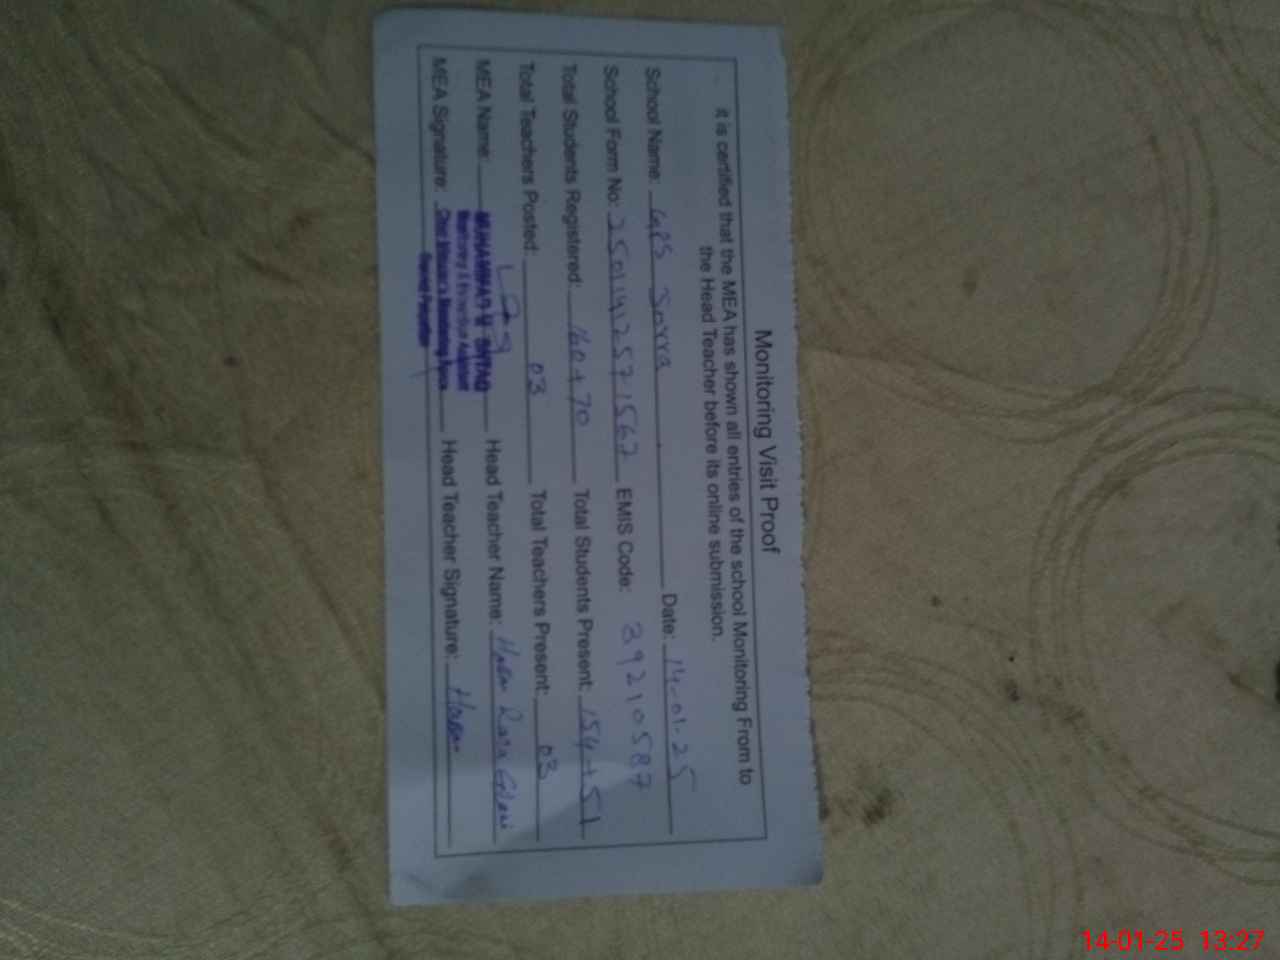 Monitoring Visit Proof
It is certified that the MEA has shown all entries of the school Monitoring From to
the Head Teacher before its online submission.
School Name: GPS Sorra Date: 14-01-25
School Form No: 25011412571567 EMIS Code: 39210587
Total Students Registered: 160+70 Total Students Present: 154+51
Total Teachers Posted: 03 Total Teachers Present: 03
MEA Name: MUHAMMAD Head Teacher Name: Raza
Monitoring & Evaluation Assistant
MEA Signature: Chief Minister's Monitoring Force Head Teacher Signature:
14-01-25 13:27